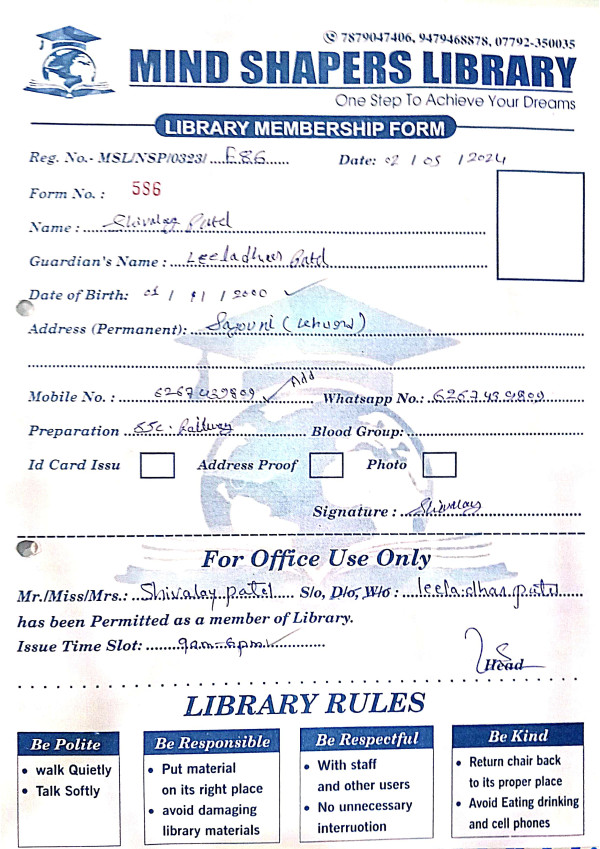 7879047406, 9479468878, 07792-350035
MIND SHAPERS LIBRARY
One Step To Achieve Your Dreams
LIBRARY MEMBERSHIP FORM
Reg. No.- MSL/NSP/0323/ E86 Date: 02 / 05 / 2024
Form No. : 586
Name : Shivalay Patel
Guardian's Name : Leeladhar Patel
Date of Birth: 01 / 01 / 2000
Address (Permanent):
Add
Mobile No. : 6267439809 Whatsapp No.: 6267439809
Preparation SSC. Railway Blood Group:
Id Card Issu Address Proof Photo
Signature : Shivalay
For Office Use Only
Mr./Miss/Mrs.: Shivalay patel S/o, D/o, W/o : leeladhar patel
has been Permitted as a member of Library.
Issue Time Slot: 9am-6pm
Head
LIBRARY RULES
Be Polite
• walk Quietly
• Talk Softly
Be Responsible
• Put material
on its right place
• avoid damaging
library materials
Be Respectful
• With staff
and other users
• No unnecessary
interruotion
Be Kind
• Return chair back
to its proper place
• Avoid Eating drinking
and cell phones